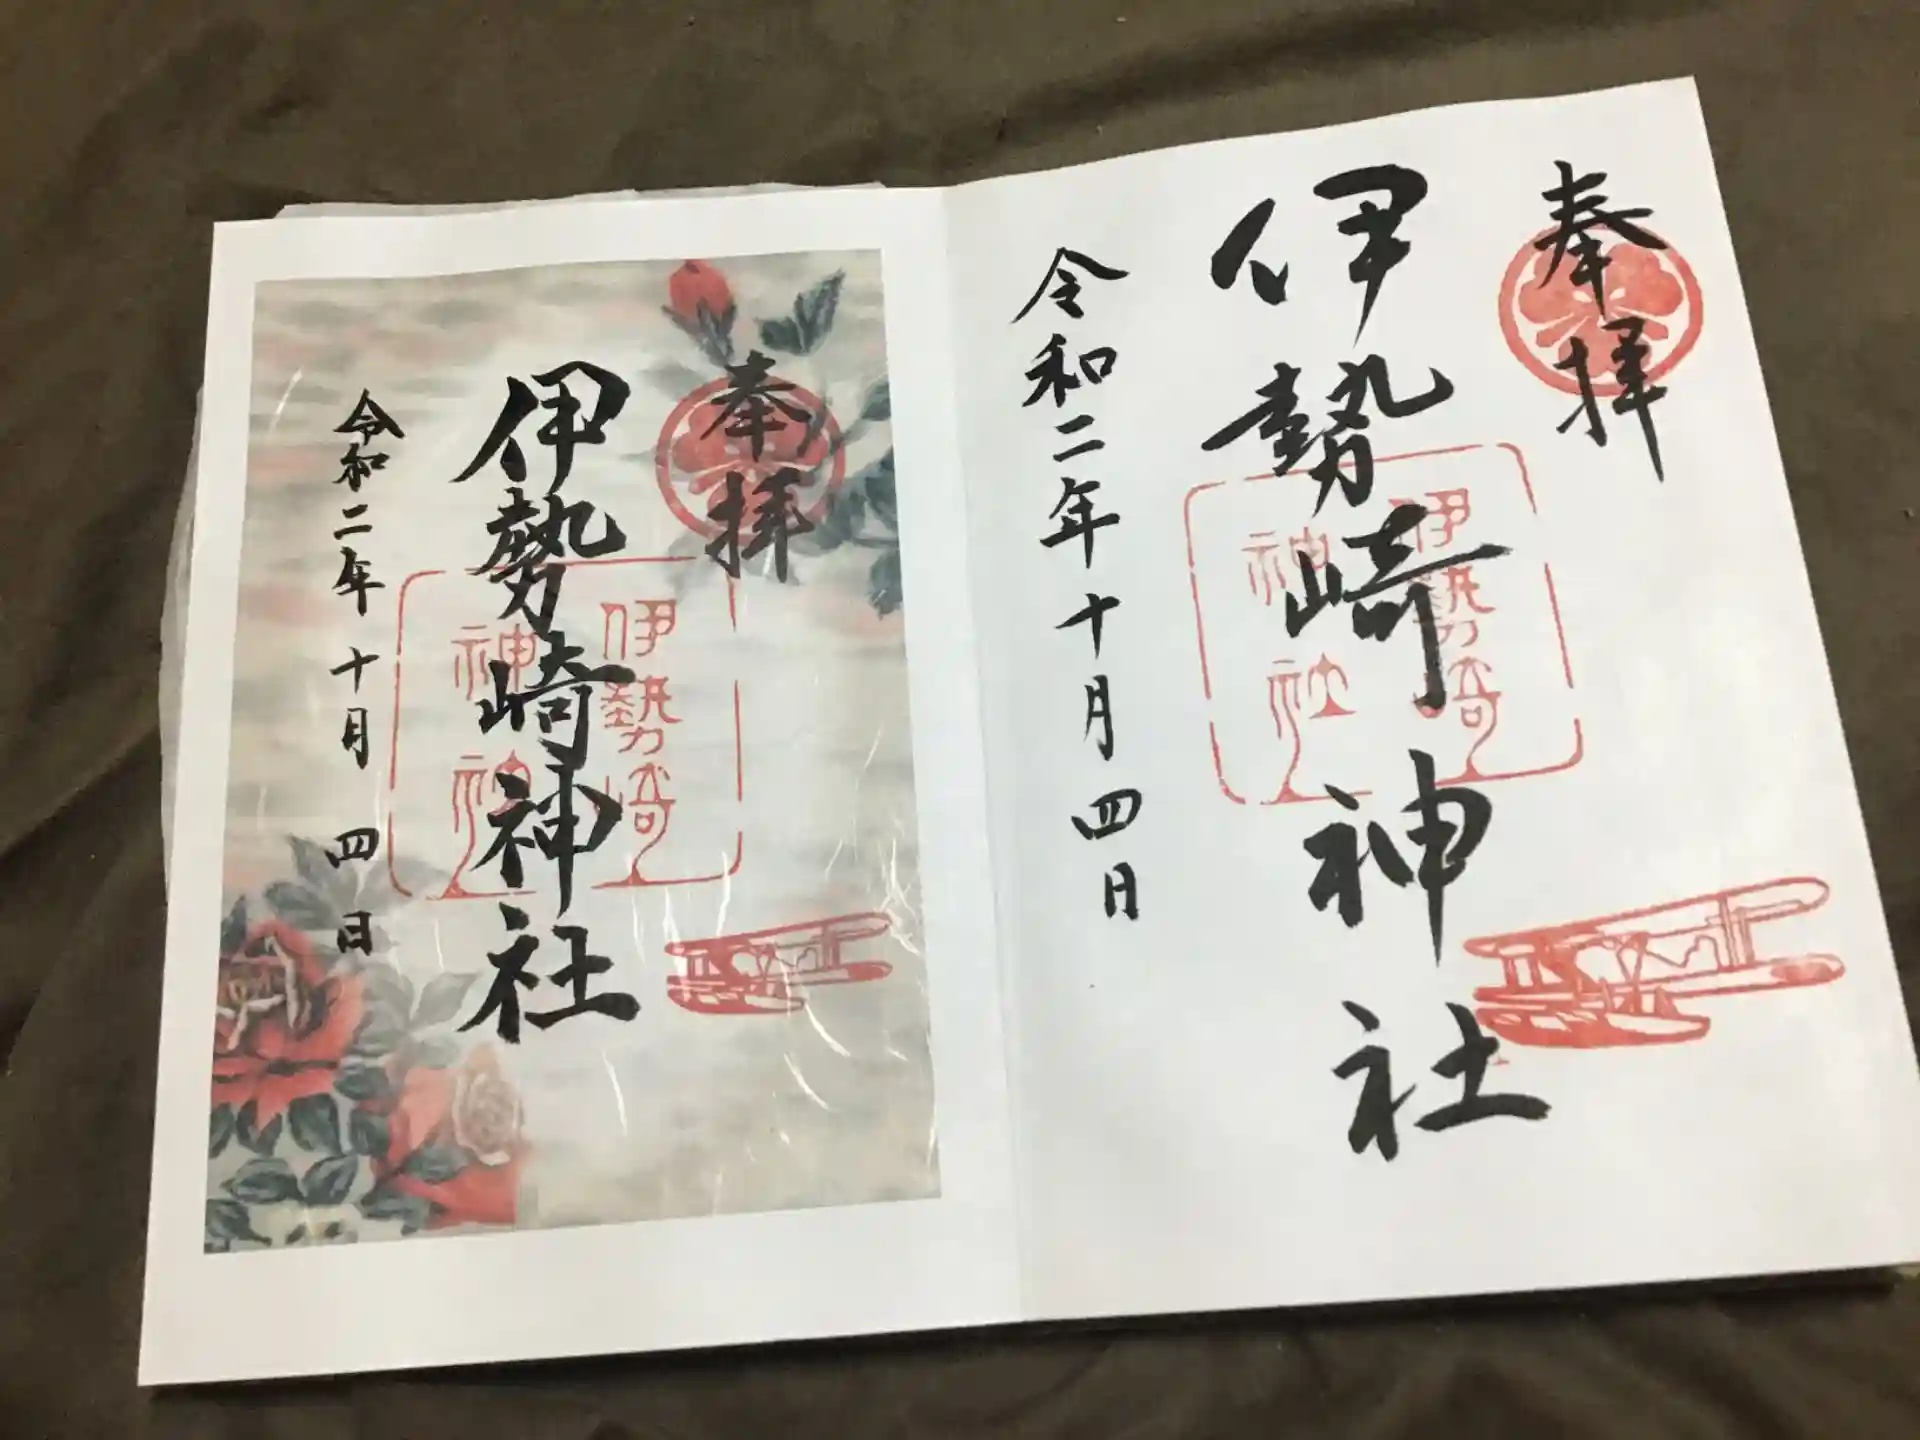 奉拝
伊勢崎神社
伊勢崎
神社
令和二年十月四日
奉拝
伊勢崎神社
伊勢崎
神社
令和二年十月四日